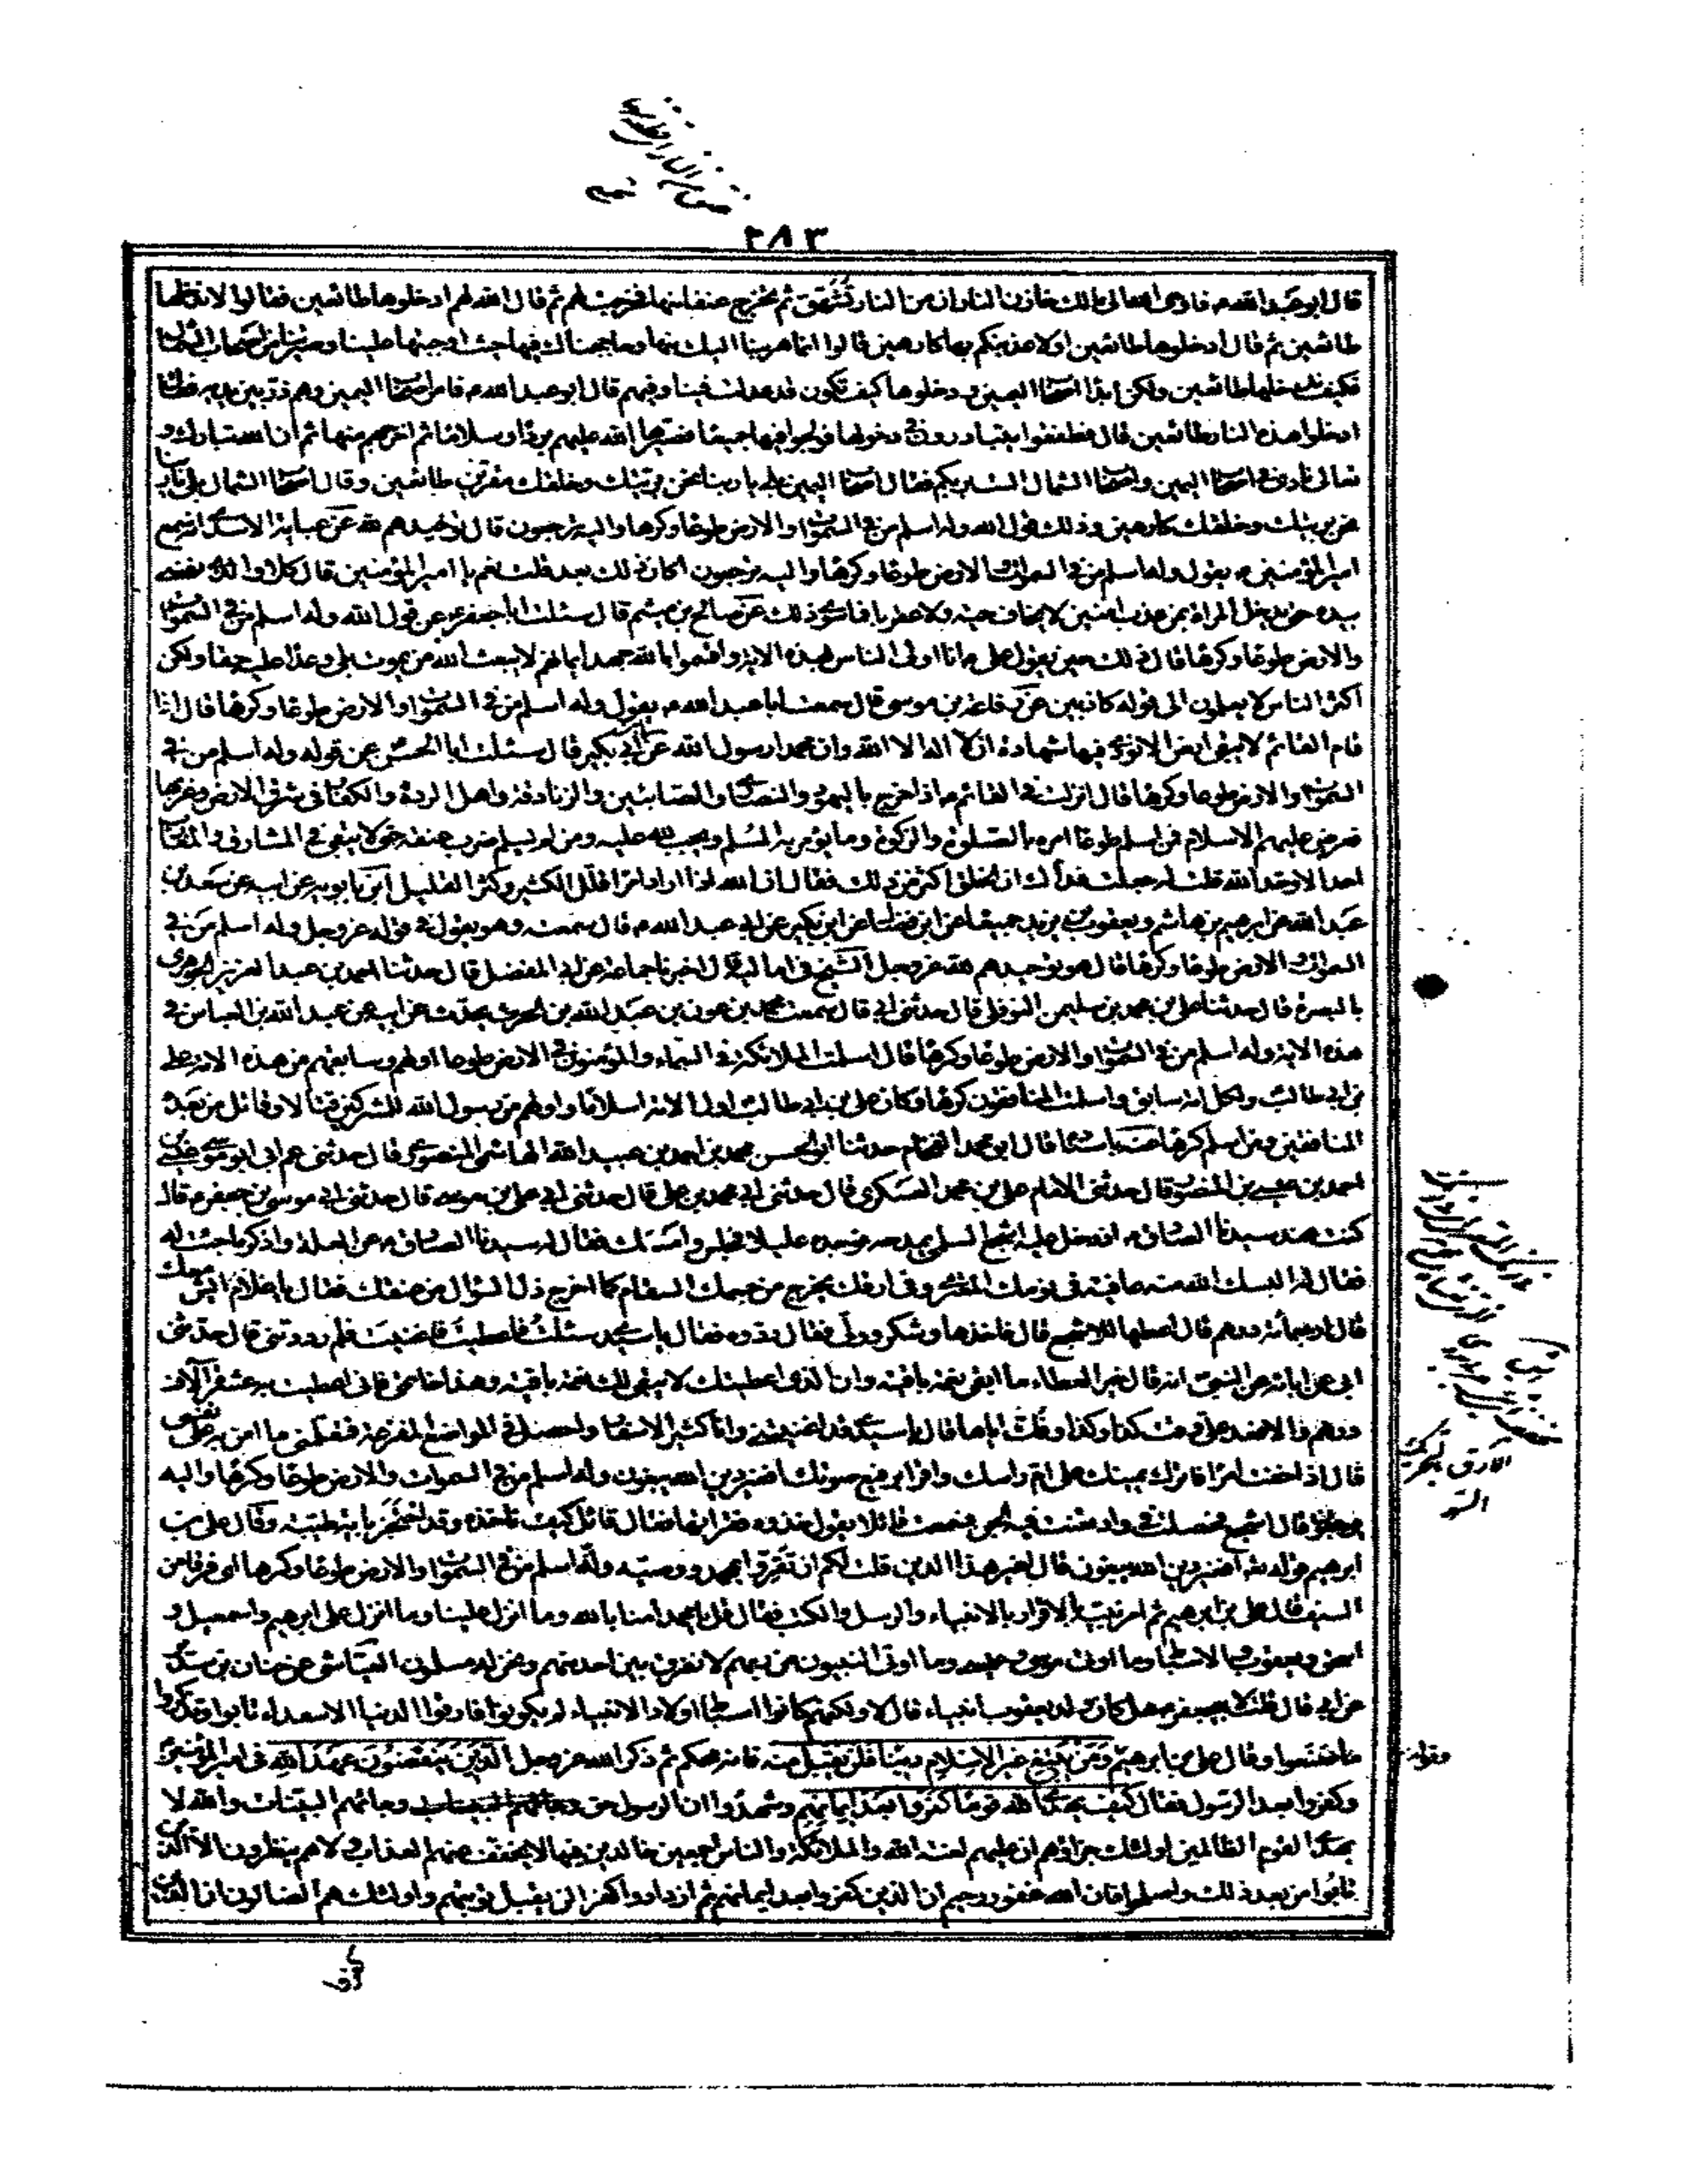 ٢٨٣
قال ابو عبد الله ع فاوحى الله تعالى الى مالك خازن النار ان مر النار تشهق ثم تخرج عنقا منها فخرجت لهم ثم قال الله لهم ادخلوها طائعين فقالوا لا ندخلها
طائعين ثم قال ادخلوها طائعين او لاعذبنكم بها كارهين قالوا انما هربنا اليك منها وحاججناك فيها حيث اوجبتها علينا وصيرتنا من اصحاب الشمال
فكيف ندخلها طائعين ولكن ابدا اصحاب اليمين في دخولها كيف تكون قد عدلت فينا وفيهم قال ابو عبد الله ع فامر اصحاب اليمين وهم ذر بين يديه فقال
ادخلوا هذه النار طائعين قال فطفقوا يتبادرون في دخولها فولجوا فيها جميعا فصيرها الله عليهم بردا وسلاما ثم اخرجهم منها ثم ان الله تبارك و
تعالى نادى في اصحاب اليمين واصحاب الشمال الست بربكم فقال اصحاب اليمين بلى يا ربنا نحن بريتك وخلقك مقرين طائعين وقال اصحاب الشمال بلى يا ربنا
نحن بريتك وخلقك كارهين وذلك قول الله وله اسلم من في السموات والارض طوعا وكرها واليه ترجعون قال توحيدهم لله عن عباية الاسدي انه سمع
امير المؤمنين ع يقول وله اسلم من في السموات والارض طوعا وكرها واليه ترجعون اكان ذلك بعد قلت نعم يا امير المؤمنين قال كلا والذي نفسي
بيده حتى يدخل المراة بمن عذب امنين لا يخاف حية ولا عقربا فما سوى ذلك عن صالح بن ميثم قال سئلت ابا جعفر ع عن قول الله وله اسلم من في السموات
والارض طوعا وكرها قال ذلك حين يقول علي ع انا اولى الناس بهذه الاية واقسموا بالله جهد ايمانهم لا يبعث الله من يموت بلى وعدا عليه حقا ولكن
اكثر الناس لا يعلمون الى قوله كاذبين عن رفاعة بن موسى قال سمعت ابا عبد الله ع يقول وله اسلم من في السموات والارض طوعا وكرها قال اذا
قام القائم لا يبقى ارض الا نودي فيها شهادة ان لا اله الا الله وان محمدا رسول الله عن ابن بكير قال سئلت ابا الحسن عن قوله وله اسلم من في
السموات والارض طوعا وكرها قال انزلت في القائم ع اذا خرج باليهود والنصارى والصابئين والزنادقة واهل الردة والكفار في شرق الارض وغربها
فعرض عليهم الاسلام فمن اسلم طوعا امره بالصلوة والزكوة وما يؤمر به المسلم ويجب لله عليه ومن لم يسلم ضرب عنقه حتى لا يبقى في المشارق والمغارب
احد الا وحد الله قلت له جعلت فداك ان الخلق اكثر من ذلك فقال ان الله اذا اراد امرا قلل الكثير وكثر القليل ابن بابويه عن ابيه عن سعد بن
عبد الله عن ابرهيم بن هاشم ويعقوب بن يزيد جميعا عن ابن فضال عن ابن بكير عن ابي عبد الله ع قال سمعته وهو يقول في قوله عز وجل وله اسلم من في
السموات والارض طوعا وكرها قال هو توحيدهم لله عز وجل الشيخ في اماليه قال اخبرنا جماعة عن ابي المفضل قال حدثنا احمد بن عبد العزيز الجوهري
بالبصرة قال حدثنا علي بن محمد بن سليمن النوفلي قال حدثني ابي قال سمعت محمد بن عون بن عبد الله بن الحرث يحدث عن ابيه عن عبد الله بن العباس في
هذه الاية وله اسلم من في السموات والارض طوعا وكرها قال اسلمت الملائكة في السماء والمؤمنون في الارض طوعا اولهم وسابقهم من هذه الامة علي
بن ابي طالب ولكل امة سابق واسلمت المنافقون كرها وكان علي بن ابي طالب اول الامة اسلاما واولهم من رسول الله للمشركين قتالا وقاتل من بعده
المنافقين ومن اسلم كرها عنه باسناده قال ابو محمد الفحام حدثنا ابو الحسن محمد بن احمد بن عبيد الله الهاشمي المنصوري قال حدثني عم ابي ابو موسى عيسى بن
احمد بن عيسى بن المنصور قال حدثني الامام علي بن محمد العسكري قال حدثني ابي محمد بن علي قال حدثني ابي علي بن موسى قال حدثني ابي موسى بن جعفر ع قال
كنت عند سيدنا الصادق ع اذ دخل عليه اشجع السلمي يمدحه فوجده عليلا فجلس وامسك فقال له سيدنا الصادق ع عد عن العلة واذكر ما جئت له
فقال له البسك الله منه عافية في نومك المعترى وفي ارقك يخرج من جسمك السقام كما اخرج ذل السؤال من عنقك فقال يا غلام ايش معك
قال اربعمائة درهم قال اعطها للاشجع قال فاخذها وشكر وولى فقال ردوه فقال يا سيدي سئلت فاعطيت فاغنيت فلم رددتني قال حدثني
ابي عن ابائه عن النبي انه قال خير العطاء ما ابقى نعمة باقية وان الذي اعطيتك لا يبقي لك نعمة باقية وهذا خاتمي فان اعطيت به عشرة آلاف
درهم والا فعد علي وقت كذا وكذا اوفك اياها قال يا سيدي قد اغنيتني وانا كثير الاسفار واحصل في المواضع المفزعة فتعلمني ما امن به على نفسي
قال اذا خفت امرا فاترك يمينك على ام راسك واقرا برفيع صوتك افغير دين الله يبغون وله اسلم من في السموات والارض طوعا وكرها واليه
يرجعون قال اشجع فحصلت في واد تعبث فيه الجن فسمعت قائلا يقول خذوه فقراتها فقال قائل كيف ناخذه وقد احتجز باية طيبة وقال علي بن
ابرهيم قوله تعالى افغير دين الله يبغون قال اغير هذا الدين قلت لكم ان تقروا بمحمد ووصيه وله اسلم من في السموات والارض طوعا وكرها اي فرقا من
السيف قال علي بن ابرهيم ثم امر نبيه بالاقرار بالانبياء والرسل والكتب فقال قل يا محمد امنا بالله وما انزل علينا وما انزل على ابرهيم واسمعيل و
اسحق ويعقوب والاسباط وما اوتي موسى وعيسى وما اوتي النبيون من ربهم لا نفرق بين احد منهم ونحن له مسلمون العياشي عن حنان بن سدير
عن ابيه قال قلت لابي جعفر ع هل كان ولد يعقوب انبياء قال لا ولكنهم كانوا اسباطا اولاد الانبياء لم يكونوا فارقوا الدنيا الا سعداء تابوا وتذكروا
ما صنعوا وقال علي بن ابرهيم ومن يبتغ غير الاسلام دينا فلن يقبل منه فانه محكم ثم ذكر الله عز وجل الذين ينقضون عهد الله في امير المؤمنين
وكفروا بعد الرسول فقال كيف يهدي الله قوما كفروا بعد ايمانهم وشهدوا ان الرسول حق وجائهم البينات والله لا
يهدي القوم الظالمين اولئك جزاؤهم ان عليهم لعنة الله والملائكة والناس اجمعين خالدين فيها لا يخفف عنهم العذاب ولا هم ينظرون الا الذين
تابوا من بعد ذلك واصلحوا فان الله غفور رحيم ان الذين كفروا بعد ايمانهم ثم ازدادوا كفرا لن يقبل توبتهم واولئك هم الضالون ان الذين